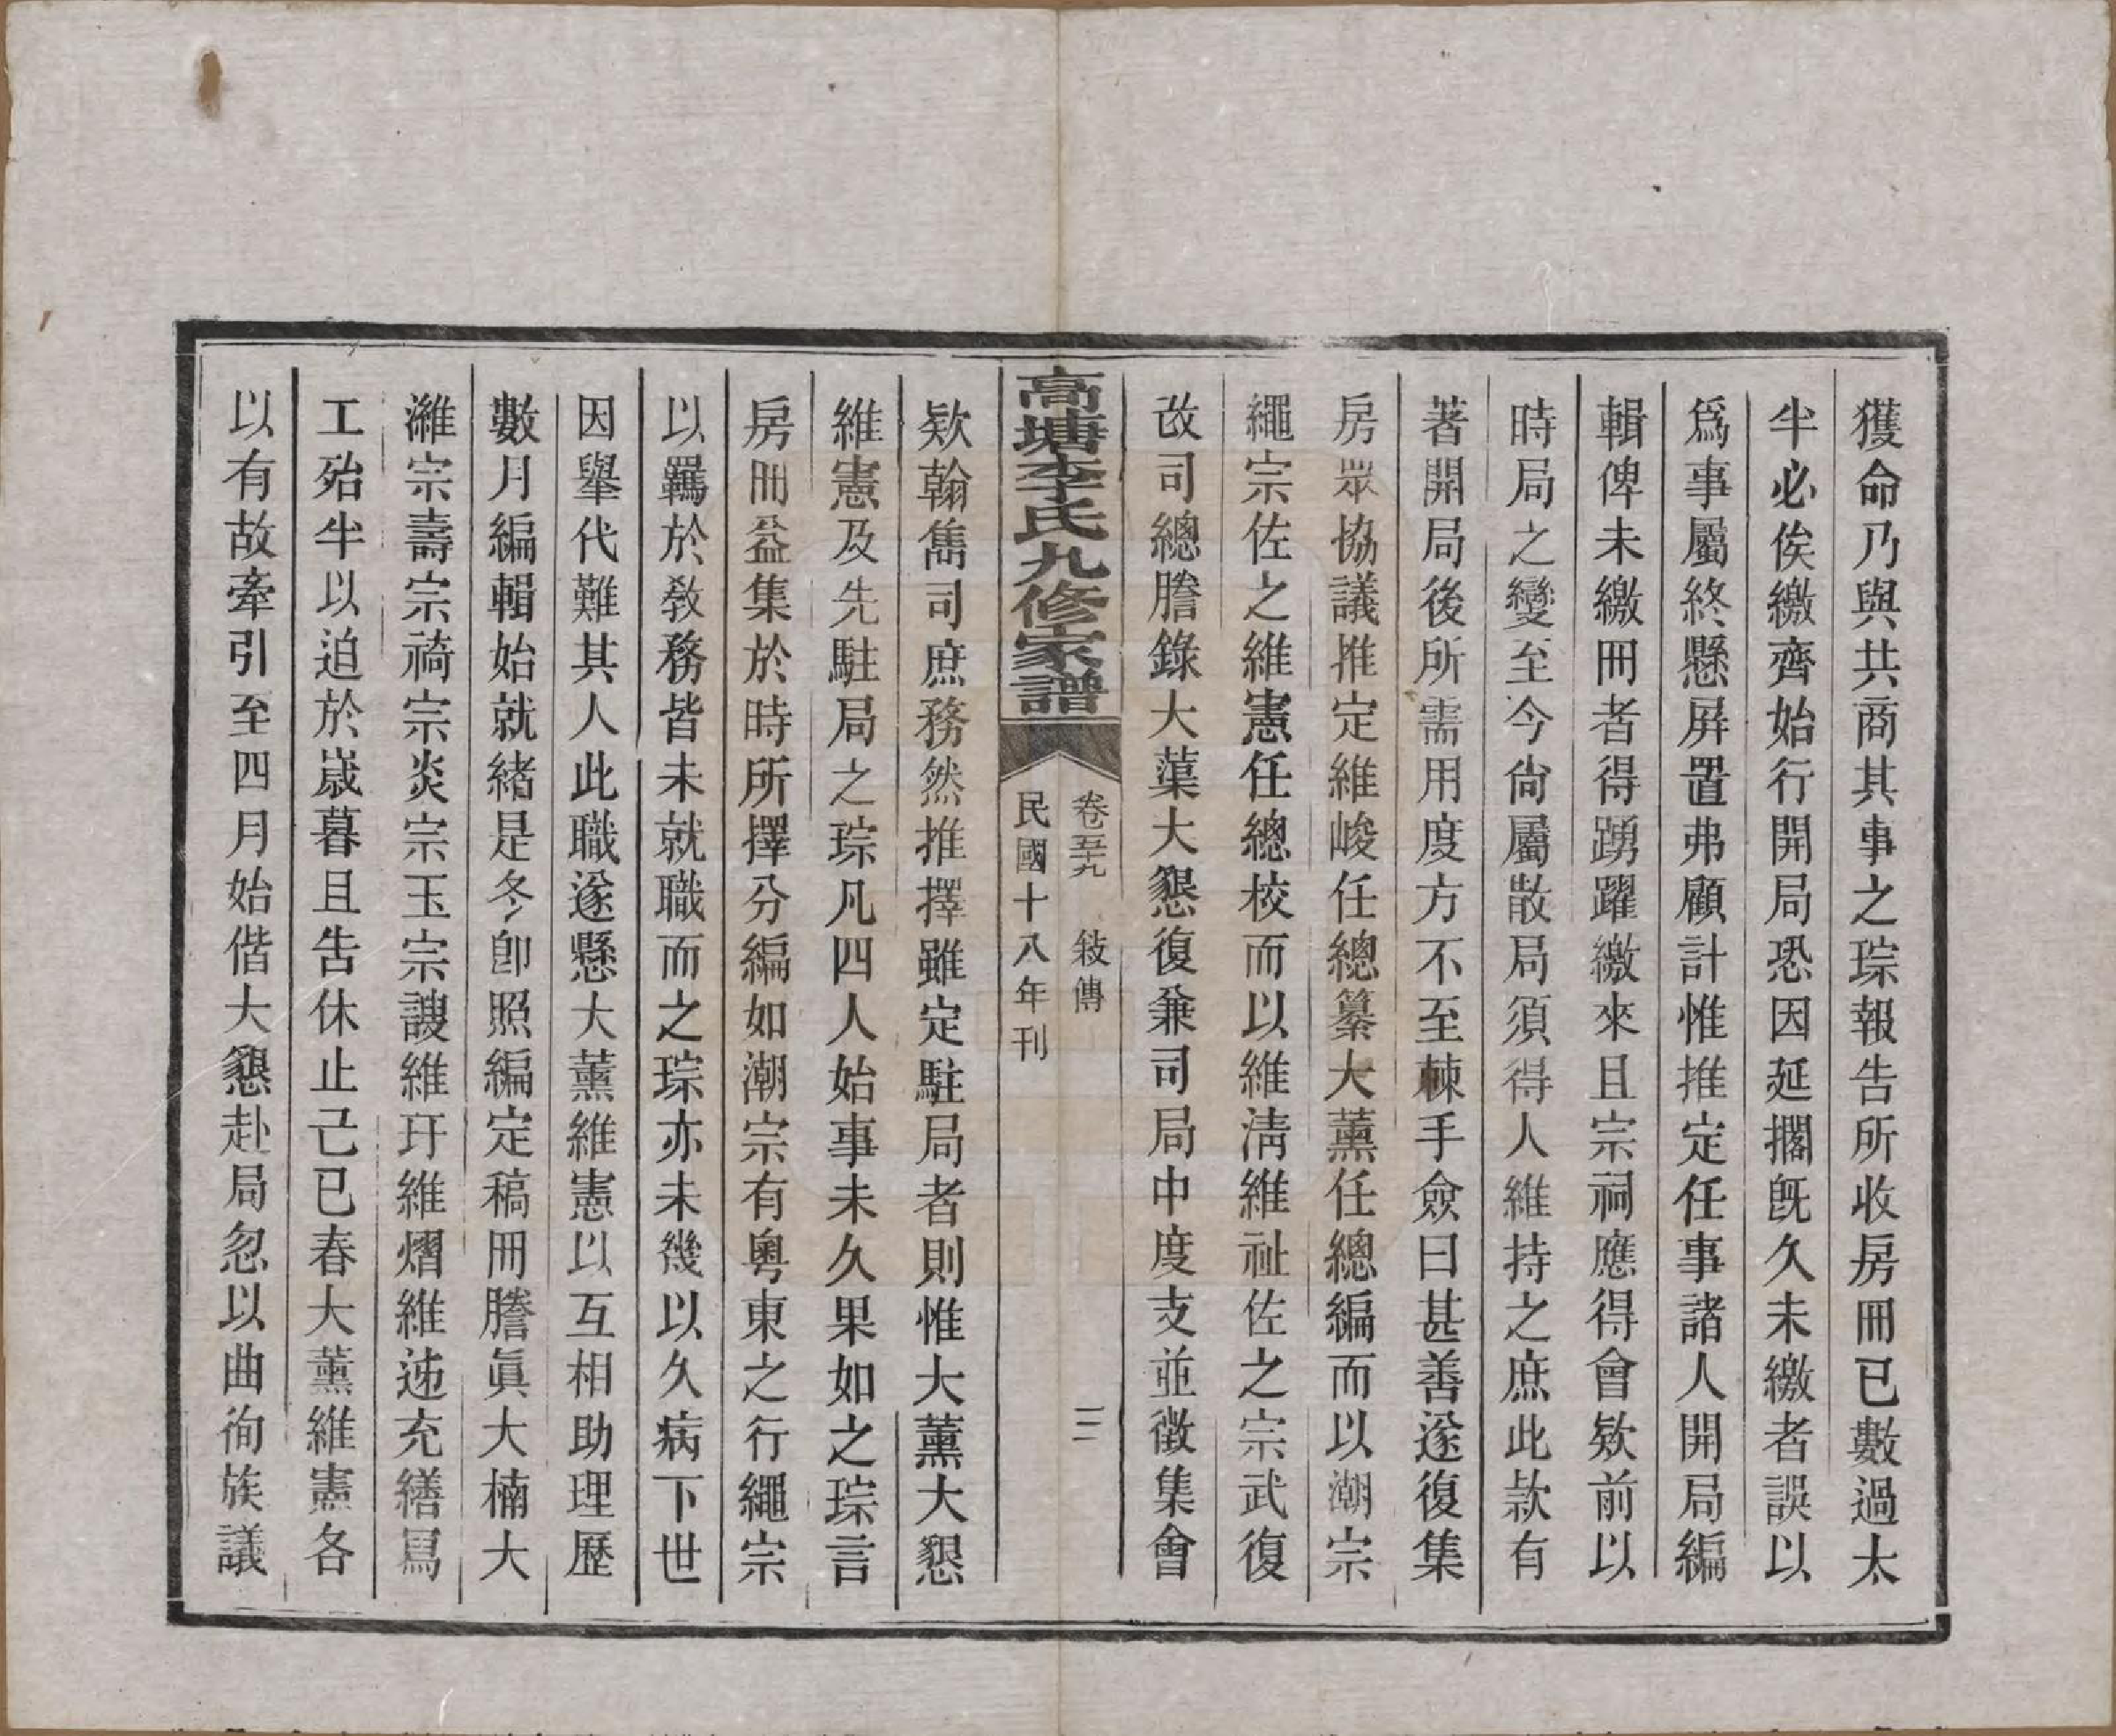 獲命乃與共商其事之琮報告所收房冊已數過太
半必俟繳齊始行開局恐因延擱旣久未繳者誤以
爲事屬終懸屏置弗顧計惟推定任事諸人開局編
輯俾未繳冊者得踴躍繳來且宗祠應得會欵前以
時局之變至今尙屬散局須得人維持之庶此款有
著開局後所需用度方不至棘手僉曰甚善遂復集
房眾協議推定維峻任總纂大薰任總編而以潮宗
繩宗佐之維憲任總校而以維淸維祉佐之宗武復
改司總謄錄大蕖大懇復兼司局中度支並徵集會
高塘李氏九修家譜 卷五十九 敍傳 三 民國十八年刊
欵翰雋司庶務然推擇雖定駐局者則惟大薰大懇
維憲及先駐局之琮凡四人始事未久果如之琮言
房冊益集於時所擇分編如潮宗有粵東之行繩宗
以羈於敎務皆未就職而之琮亦未幾以久病下世
因舉代難其人此職遂懸大薰維憲以互相助理歷
數月編輯始就緒是冬卽照編定稿冊謄眞大楠大
濰宗壽宗褀宗炎宗玉宗謏維玗維熠維𨒪充繕寫
工殆半以迫於嵗暮且告休止己巳春大薰維憲各
以有故牽引至四月始偕大懇赴局忽以曲徇族議